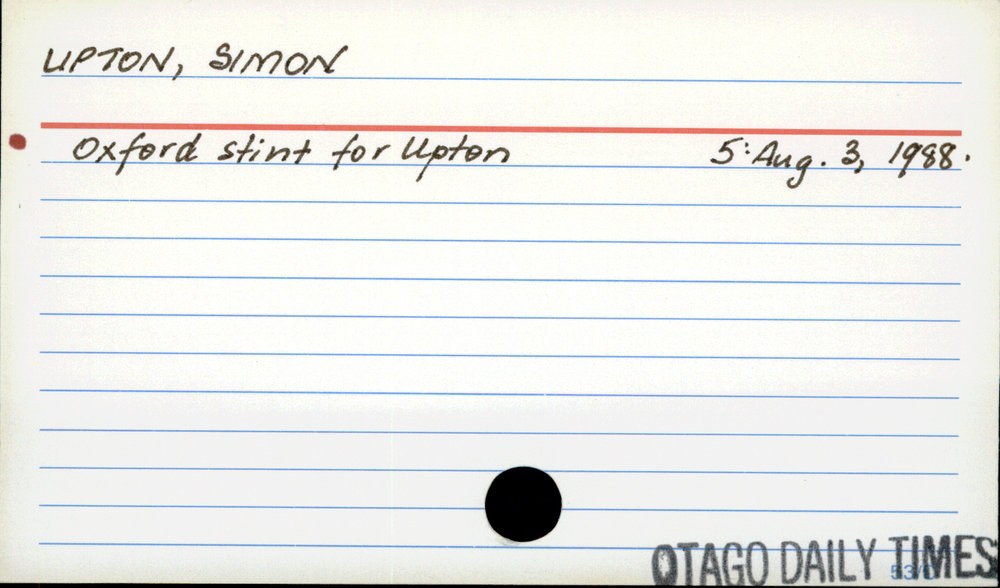 UPTON, SIMON
Oxford stint for Upton 5: Aug. 3, 1988.
OTAGO DAILY TIMES